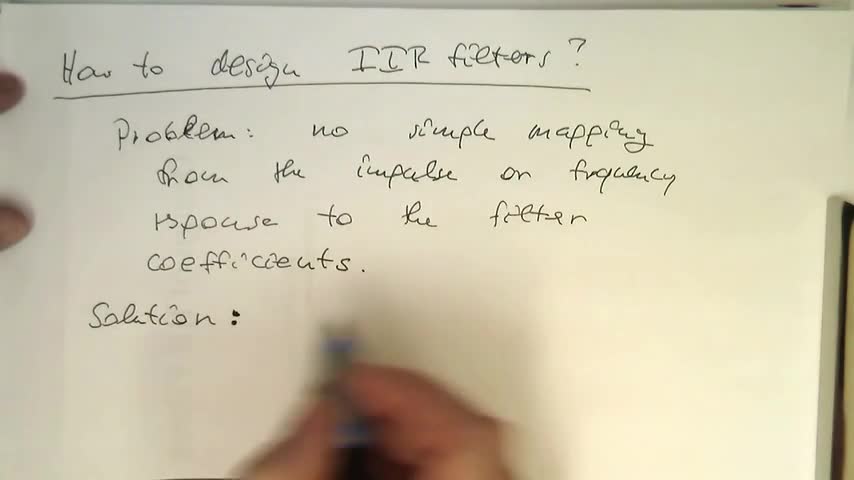 How to design IIR filters?
Problem: no simple mapping
from the impulse or frquency
rsponse to the filter
coefficients.
Solution: